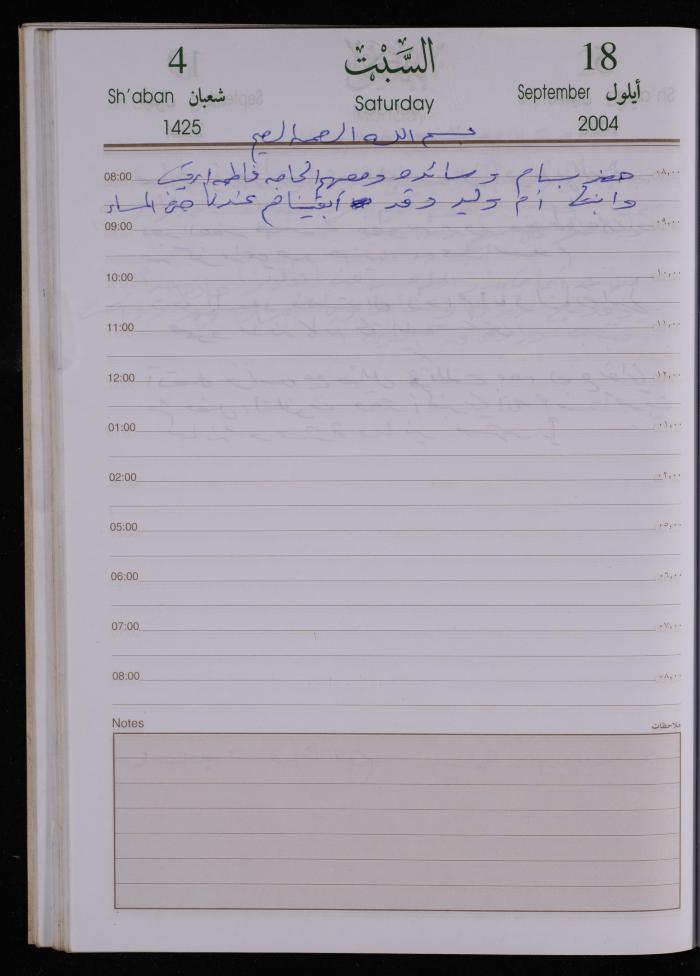 4 السَّبْت 18
Sh'aban شعبان Saturday September أيلول
1425 2004
بسم الله الرحمن الرحيم
08:00 حضر بسام وسائده ومعهم الحاجه فاطمه ٠٨،٠٠
وابنتها أم وليد وقد أبقيناهم عندنا حتى المساء
09:00 ٠٩،٠٠
10:00 ١٠،٠٠
11:00 ١١،٠٠
12:00 ١٢،٠٠
01:00 ٠١،٠٠
02:00 ٠٢،٠٠
05:00 ٠٥،٠٠
06:00 ٠٦،٠٠
07:00 ٠٧،٠٠
08:00 ٠٨،٠٠
Notes ملاحظات